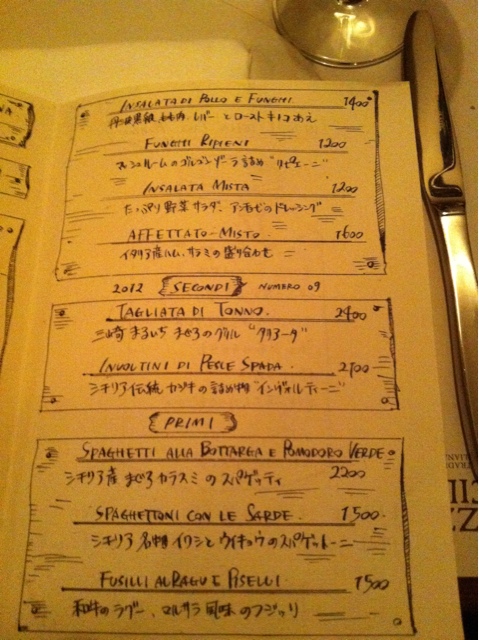 INSALATA DI POLLO E FUNGHI 1400
丹波黒鶏 もも肉、レバーとローストキノコあえ
FUNGHI RIPIENI 1200
マッシュルームのゴルゴンゾーラ詰め "リピエーニ"
INSALATA MISTA 1200
たっぷり野菜サラダ、アンチョビのドレッシング
AFFETTATO MISTO 1600
イタリア産ハム、サラミの盛り合わせ
2012 SECONDI NUMERO 09
TAGLIATA DI TONNO. 2400
三崎 まるいち まぐろのグリル "タリアータ"
INVOLTINI DI PESCE SPADA. 2100
シチリア伝統 カジキの詰め物 "インヴォルティーニ"
PRIMI
SPAGHETTI ALLA BOTTARGA E POMODORO VERDE
シチリア産 まぐろカラスミ のスパゲッティ 2200
SPAGHETTONI CON LE SARDE. 1500.
シチリア名物 イワシとウイキョウのスパゲットーニ
FUSILLI AL RAGU E PISELLI 1500
和牛のラグー、マルサラ風味のフジッリ